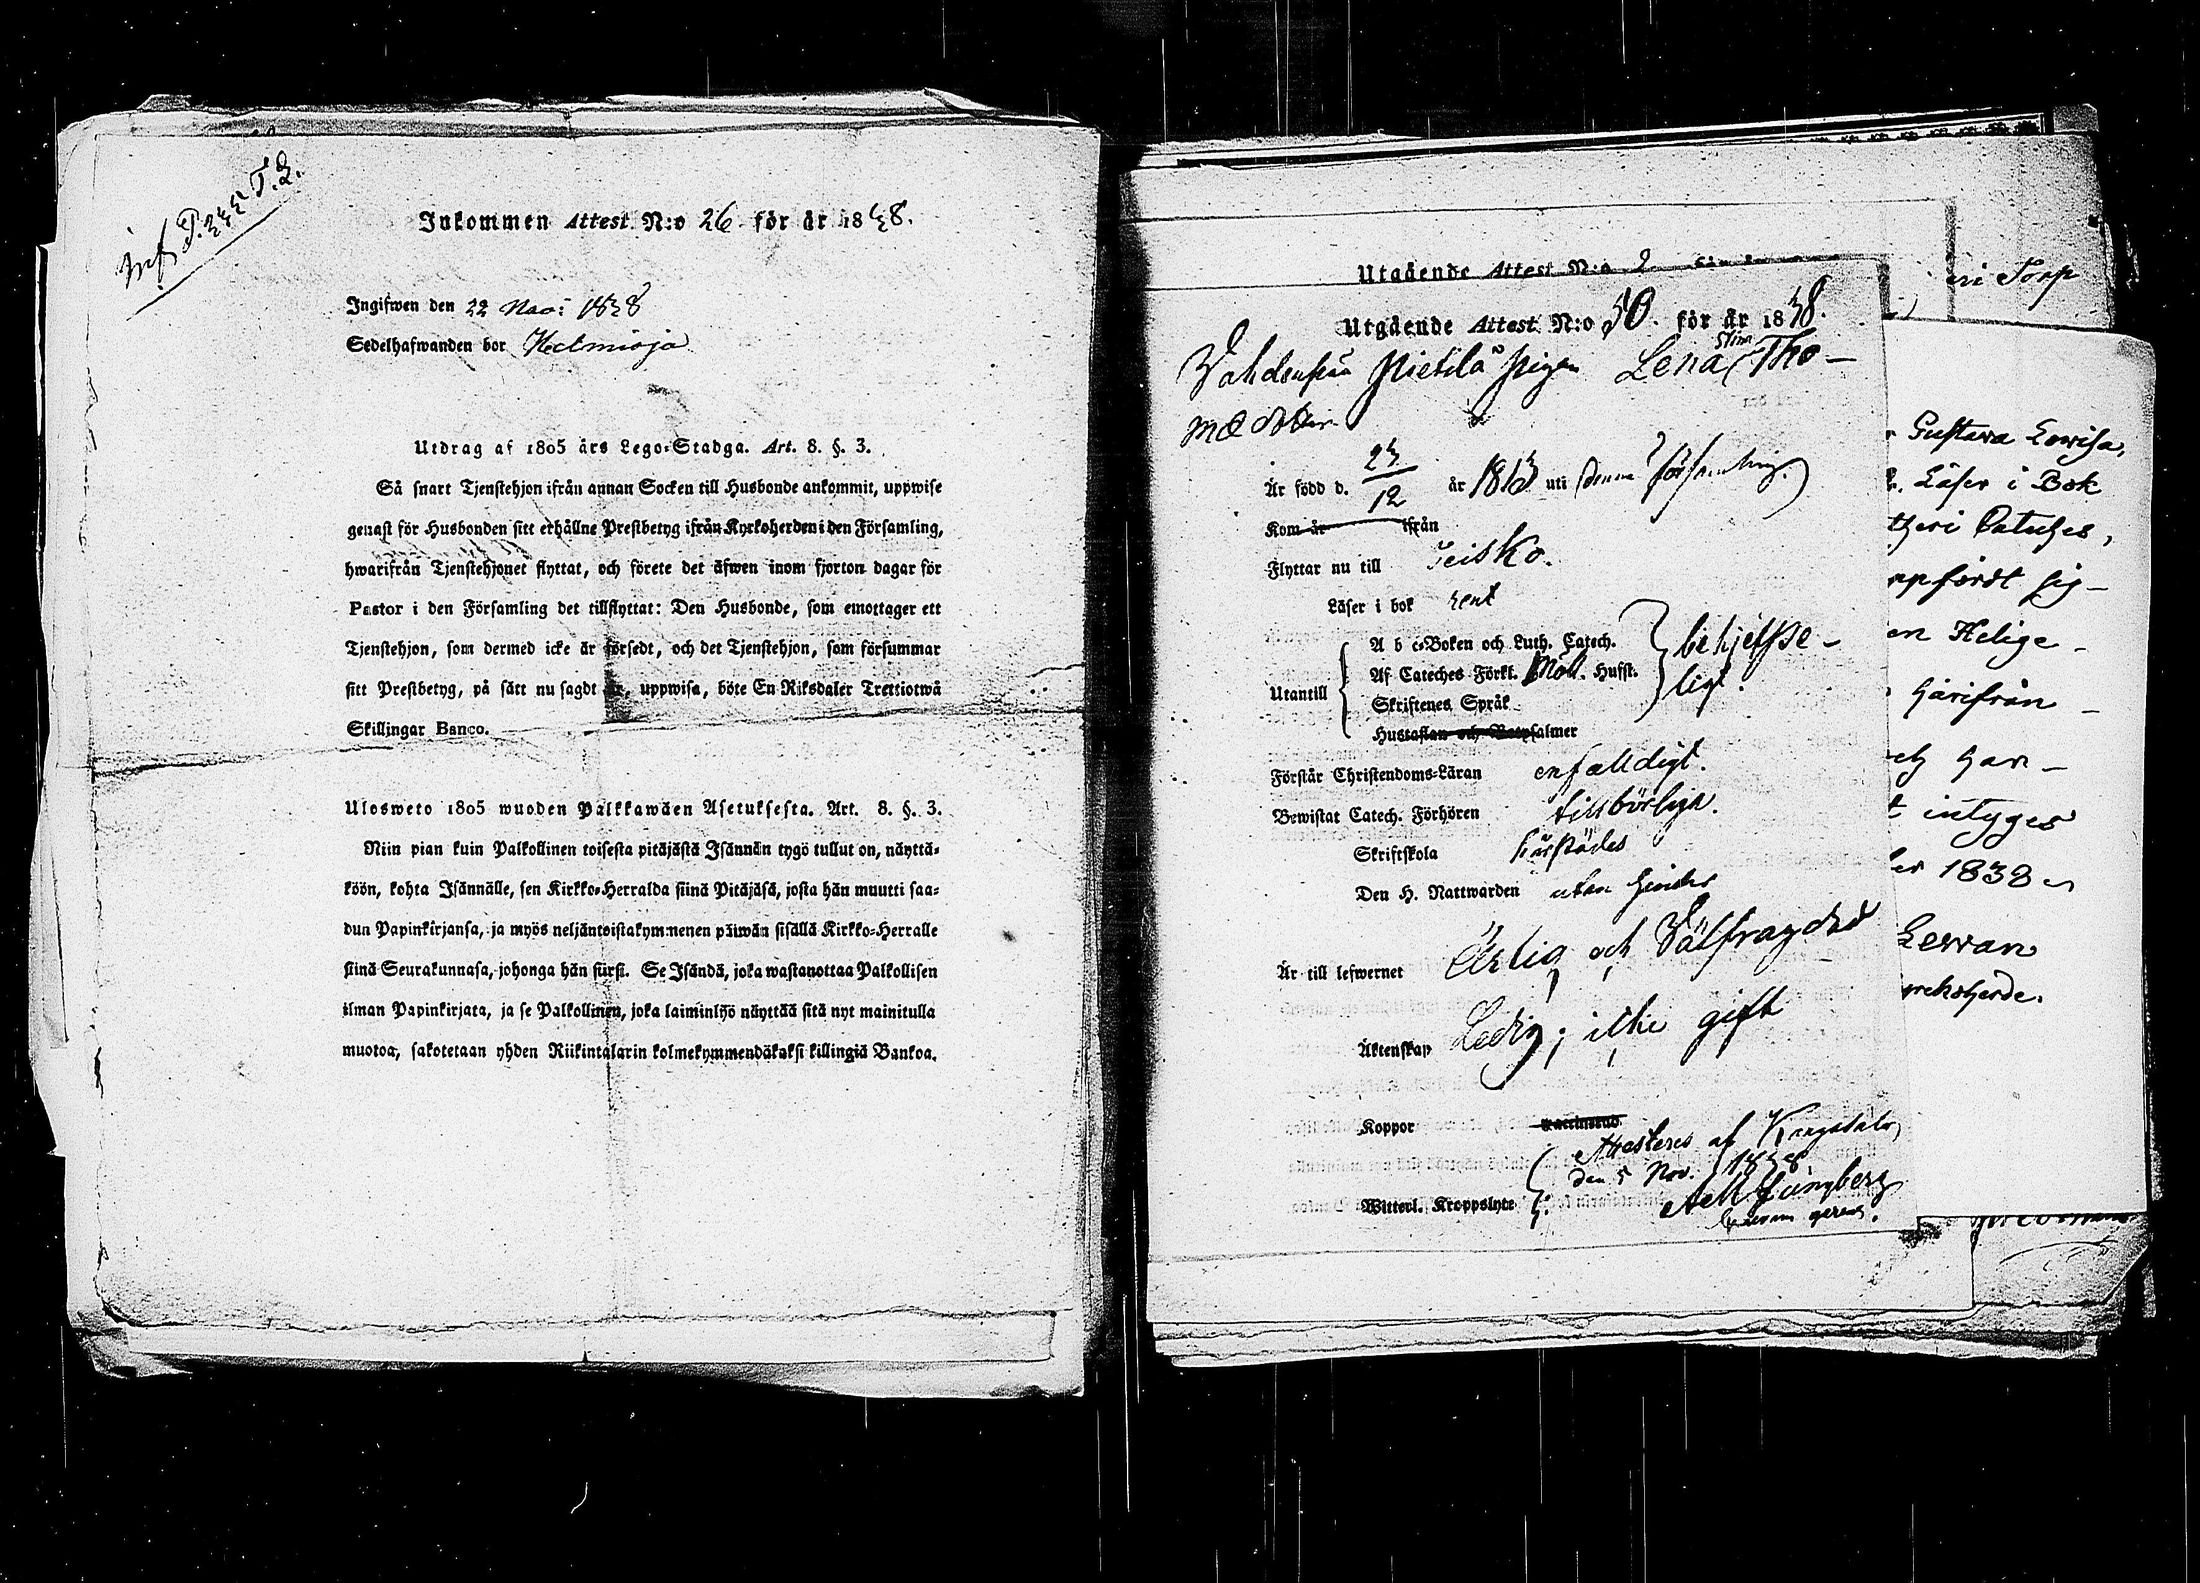 Inf. P. 333 T. 2.
Inkommen Attest. N:o 26 för år 1838.
Ingifwen den 22 Nov: 1838
Sedelhafwanden bor
Utdrag af 1805 års Lego-Stadga. Art. 8. §. 3.
Så snart Tjenstehjon ifrån annan Socken till Husbonde ankommit, uppwise
genast för Husbonden sitt erhållne Prestbetyg ifrån Kyrkoherden i den Församling,
hwarifrån Tjenstehjonet flyttat, och förete det äfwen inom fjorton dagar för
Pastor i den Församling det tillflyttat: Den Husbonde, som emottager ett
Tjenstehjon, som dermed icke är försedt, och det Tjenstehjon, som försummar
sitt Prestbetyg, på sätt nu sagdt är, uppwisa, böte En Riksdaler Trettiotwå
Skillingar Banco.
Ulosweto 1805 wuoden Palkkawäen Asetuksesta. Art. 8. §. 3.
Niin pian kuin Palkollinen toisesta pitäjästä Isännän tygö tullut on, näyttä-
köön, kohta Isännälle, sen Kirkko-Herralda siinä Pitäjäsä, josta hän muutti saa-
dun Papinkirjansa, ja myös neljäntoistakymmenen päiwän sisällä Kirkko-Herralle
siinä Seurakunnasa, johonga hän siirsi. Se Isändä, joka wastanottaa Palkollisen
ilman Papinkirjata, ja se Palkollinen, joka laiminlyö näyttää sitä nyt mainitulla
muotoa, sakotetaan yhden Riikintalarin kolmekymmendäkaksi killingiä Bankoa.
Utgående Attest N:o 2
Utgående Attest. N:o 50. för år 1838.
Vahdenpää Pietilä pigan Lena Stina Tho-
mædotter
Är född d. 23/12 år 1813 uti denna församling.
Kom år ifrån
Flyttar nu till Teisko.
Läser i bok rent
A b c-Boken och Luth. Catech.
Af Cateches Förkl. Mol. Hufst.
Utantill
Skriftenes Språk
behjelpe-
ligt.
Hustaflan och Botpsalmer
Förstår Christendoms-Läran enfalldigt.
Bewistat Catech. Förhören tillbörliga.
Skriftskola härstädes
Den H. Nattwarden utan hinder
Är till lefwernet Ärlig och Välfrägdad
Äktenskap Ledig; icke gift
Koppor Vaccinerad
Attesteres af Kangasala,
den 5 Nov. 1838
Witterl. Kroppslyte
ri Torp
Gustava Lovisa,
Läser i Bok
theri Catches,
ppfördt sig
en Helige
härifrån
och har
t intyges
er 1838
Lewan
yrckoherde.